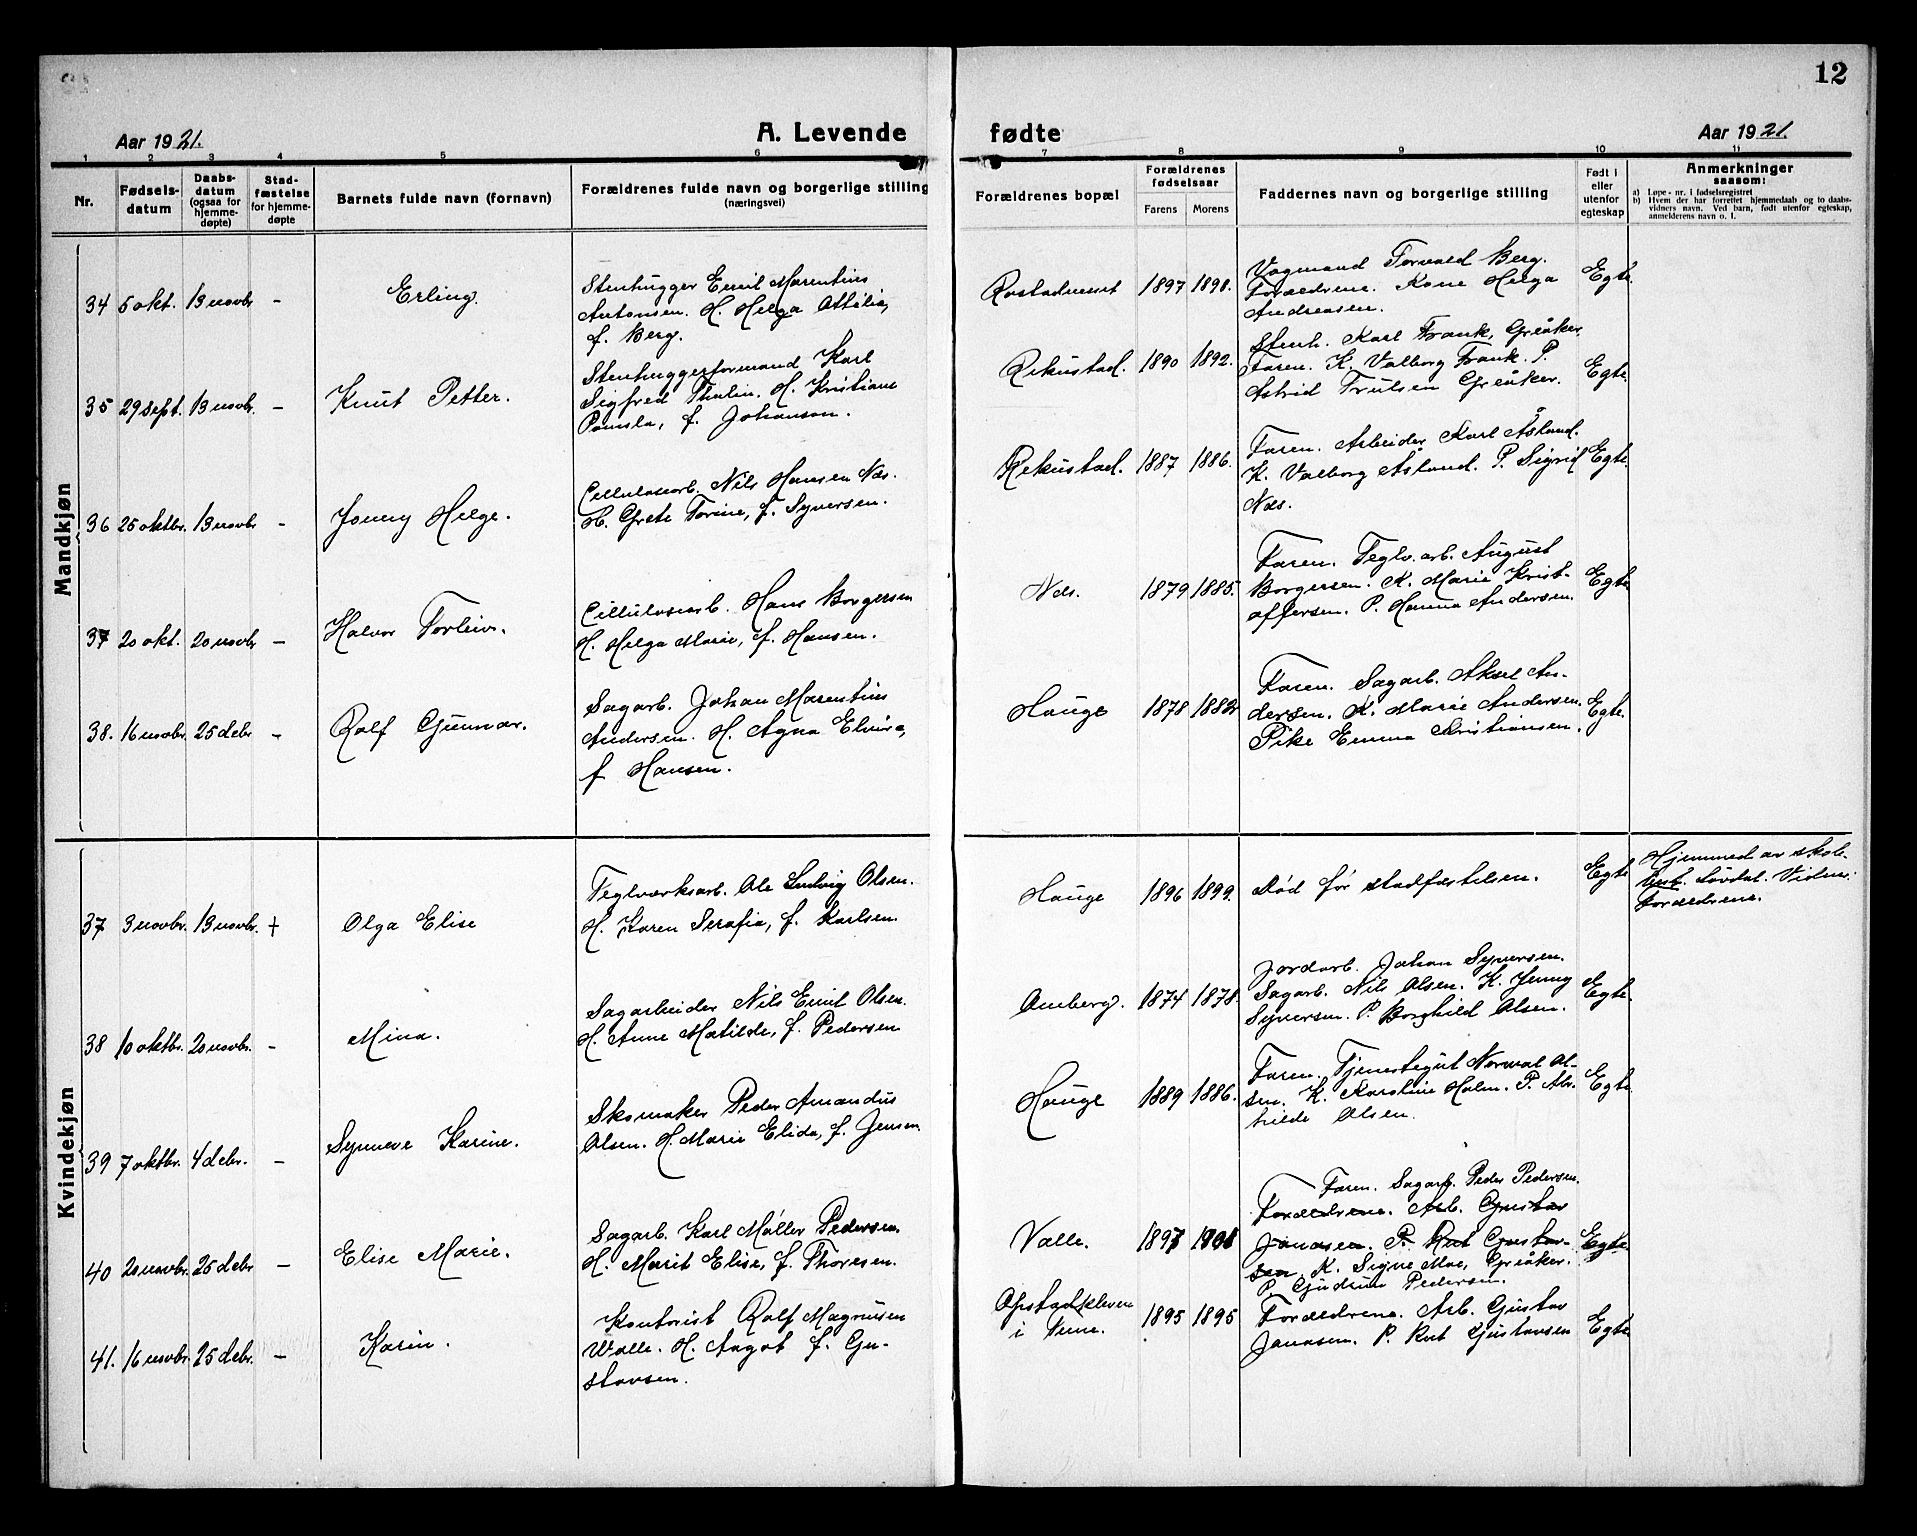 12
Aar 1921.
A. Levende
fødte
Aar 1921.
1 2 3 4 5 6 7 8 9 10 11
Nr.
Fødsels-
datum
Daabs-
datum
(ogsaa for
hjemme-
døpte)
Stad-
fæstelse
for hjemme-
døpte
Barnets fulde navn (fornavn)
Forældrenes fulde navn og borgerlige stilling
(næringsvei)
Forældrenes bopæl
Forældrenes
fødselsaar
Farens Morens
Faddernes navn og borgerlige stilling
Født i
eller
utenfor
egteskap
Anmerkninger
saasom:
a) Løpe-nr. i fødselsregistret
b) Hvem der har forrettet hjemmedaab og to daabs-
vidners navn. Ved barn, født utenfor egteskap,
anmelderens navn o. l.
Mandkjøn
34 5 okt. 13 novbr -
Erling.
Stenhugger Emil Marentius
Antonsen. H. Helga Attilia,
f. Berg.
1897 1898.
Vogmand Torvald Berg.
Forældrene. Kone Helga
Andreasen.
Egte.
35 29 sept. 13 novbr. -
Knut Petter.
Stenhuggerformand Karl
Sigfred Thalin. H. Kristiane
f. Johansen.
Rekustad. 1890 1892.
Stenh. Karl Frank, Greåker.
Faren. K. Valborg Frank. P.
Astrid Trulsen Greåker.
Egte.
36 25 oktbr. 13 novbr -
Jonny Helge.
Cellulosearb. Nils Hansen Næs.
H. Grete Torine, f. Syversen.
Rekustad. 1887 1886.
Faren. Arbeider Karl Åsland.
K. Valborg Åsland. P. Sigrid
Næs.
Egte.
37 20 okt. 20 novbr -
Halvor Torleiv.
Cellulosearb. Hans Borgersen
H. Helga Marie, f. Hansen.
Næs. 1879 1885.
Faren. Teglv.arb. August
Borgersen. K. Marie Krist-
offersen. P. Hanna Andersen.
Egte
38. 16 novbr. 25 debr -
Rolf Gunnar.
Sagarb. Johan Marentius
Andersen. H. Agna Elvira,
f Hansen.
Hauge 1878 1882
Faren. Sagarb. Aksel An-
dersen. K. Marie Andersen.
Pike Emma Kristiansen.
Egte.
Kvindekjøn
37 3 novbr. 13 novbr. +
Olga Elise
Teglværksarb. Ole Ludvig Olsen.
H. Karen Serafia, f. Karlsen
Hauge 1896 1899.
Død før stadfæstelsen.
Egte
Hjemmed av skole-
best. Løvdal. Vidne:
Forældrene.
38 10 oktbr. 20 novbr. -
Mina.
Sagarbeider Nils Emil Olsen.
H. Anne Matilde, f. Pedersen
Amberg. 1874 1878.
Jordarb. Johan Syversen.
Sagarb. Nils Olsen. K. Jenny
Syversen. P. Borghild Olsen.
Egte.
39 7 oktbr. 4 debr. -
Synneve Karine.
Skomaker Peder Amandus
Olsen. H. Marie Elida, f. Jensen
Hauge 1889 1886.
Faren. Tjenestegut Norval Ol-
sen. K. Karoline Holm. P. Alv-
hilde Olsen.
Egte
40 20 novbr. 25 debr -
Elise Marie.
Sagarb. Karl Møller Pedersen.
H. Marit Elise, f. Thoresen.
Valle. 1897 1901
Faren. Sagarb. Peder Pedersen.
Forældrene. Arb. Gustav
Jonasen. P. Rut Gustav-
sen, K. Signe Moe, Greåker.
P. Gudrun Pedersen.
Egte.
41. 16 novbr. 25 debr. -
Karin.
Kontorist Rolf Magnusen
Walle. H. Aagot f. Gu-
stavsen.
Opstadkleven
i Tune. 1895 1895
Forældrene. Arb. Gustav
Jonasen. P. Rut Gustavsen
Egte.